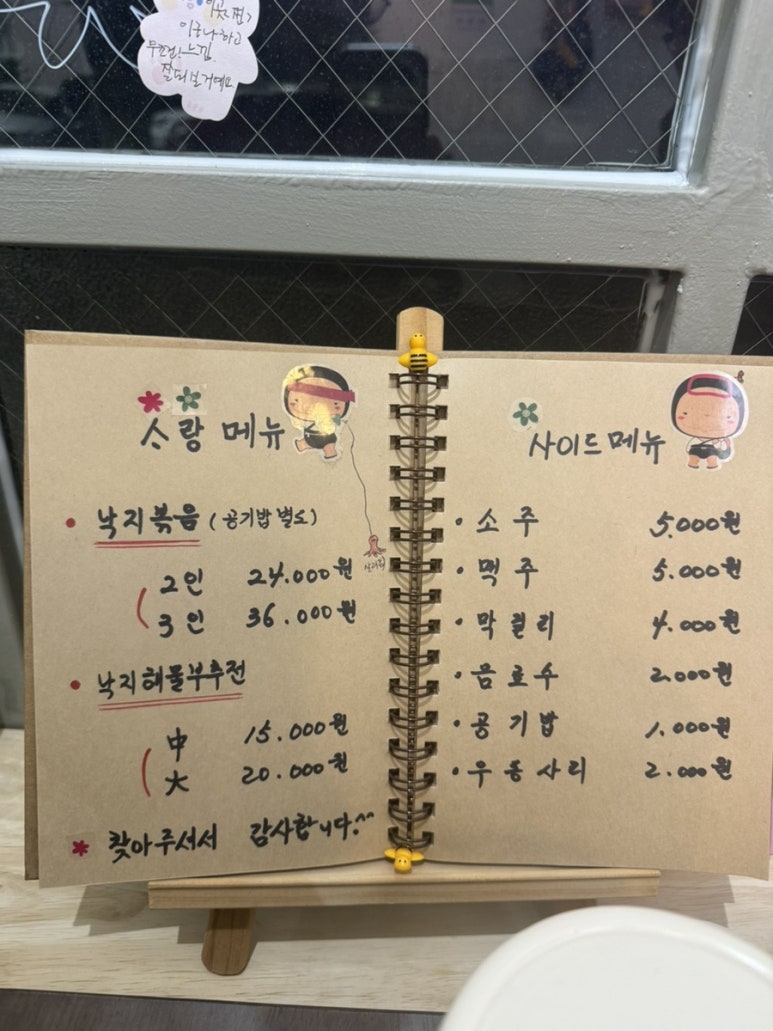 이로나하고
무조건! 느낌
잘 되볼거예요
스랑 메뉴
낙지볶음 (공기밥 별도)
2인 24.000원
3인 36.000원
낙지해물부추전
中 15.000원
大 20.000원
찾아주서서 감사합니다.^^
사이드메뉴
소주 5.000원
맥주 5.000원
막걸리 4.000원
음료수 2.000원
공기밥 1.000원
우동사리 2.000원